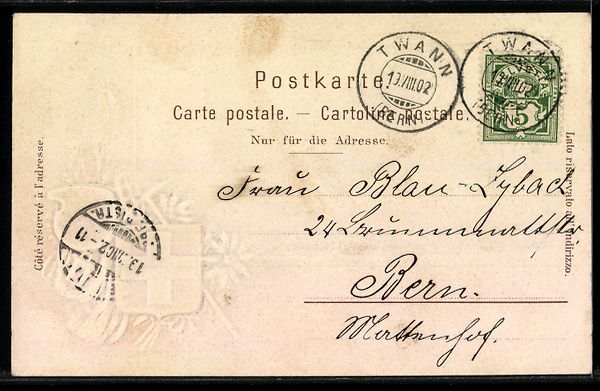 Postkarte.
Carte postale. — Cartolina postale.
Nur für die Adresse.
Côté réservé à l'adresse.
Lato riservato all'indirizzo.
TWANN
13.VIII.02
(BERN)
TWANN
13.VIII.02
(BERN)
5
13.VIII.02-11
Frau Blau-Zybach
24 Brunnmattstr
Bern.
Mattenhof.